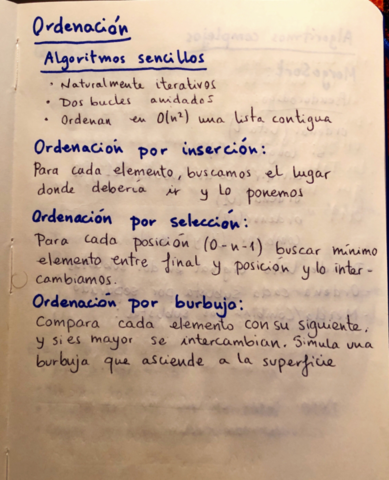 Ordenación
Algoritmos sencillos
· Naturalmente iterativos
· Dos bucles anidados
· Ordenan en O(n²) una lista contigua
Ordenación por inserción:
Para cada elemento, buscamos el lugar
donde debería ir y lo ponemos
Ordenación por selección:
Para cada posición (0-n-1) buscar mínimo
elemento entre final y posición y lo inter-
cambiamos.
Ordenación por burbuja:
Compara cada elemento con su siguiente,
y si es mayor se intercambian. Simula una
burbuja que asciende a la superficie